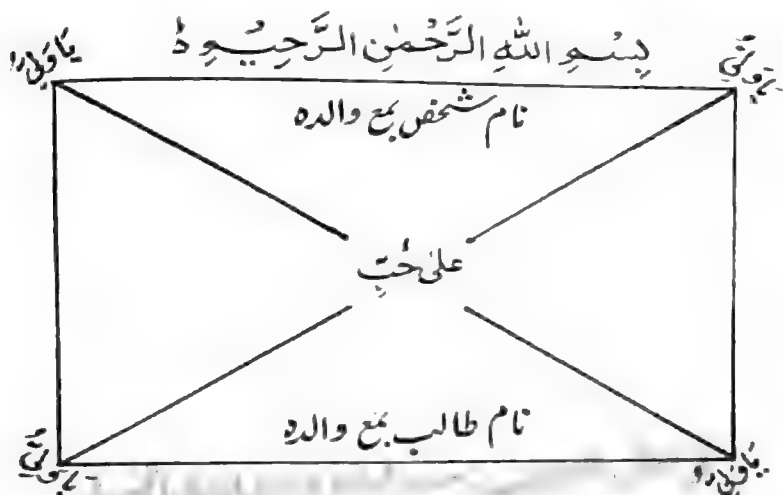 بِسْمِ اللهِ الرَّحْمٰنِ الرَّحِيْمِ ط
يَا وَلِيُّ
يَا وَلِيُّ
نام شخص بمع والدہ
علیٰ حُبِّ
نام طالب بمع والدہ
يَا وَلِيُّ
يَا وَلِيُّ